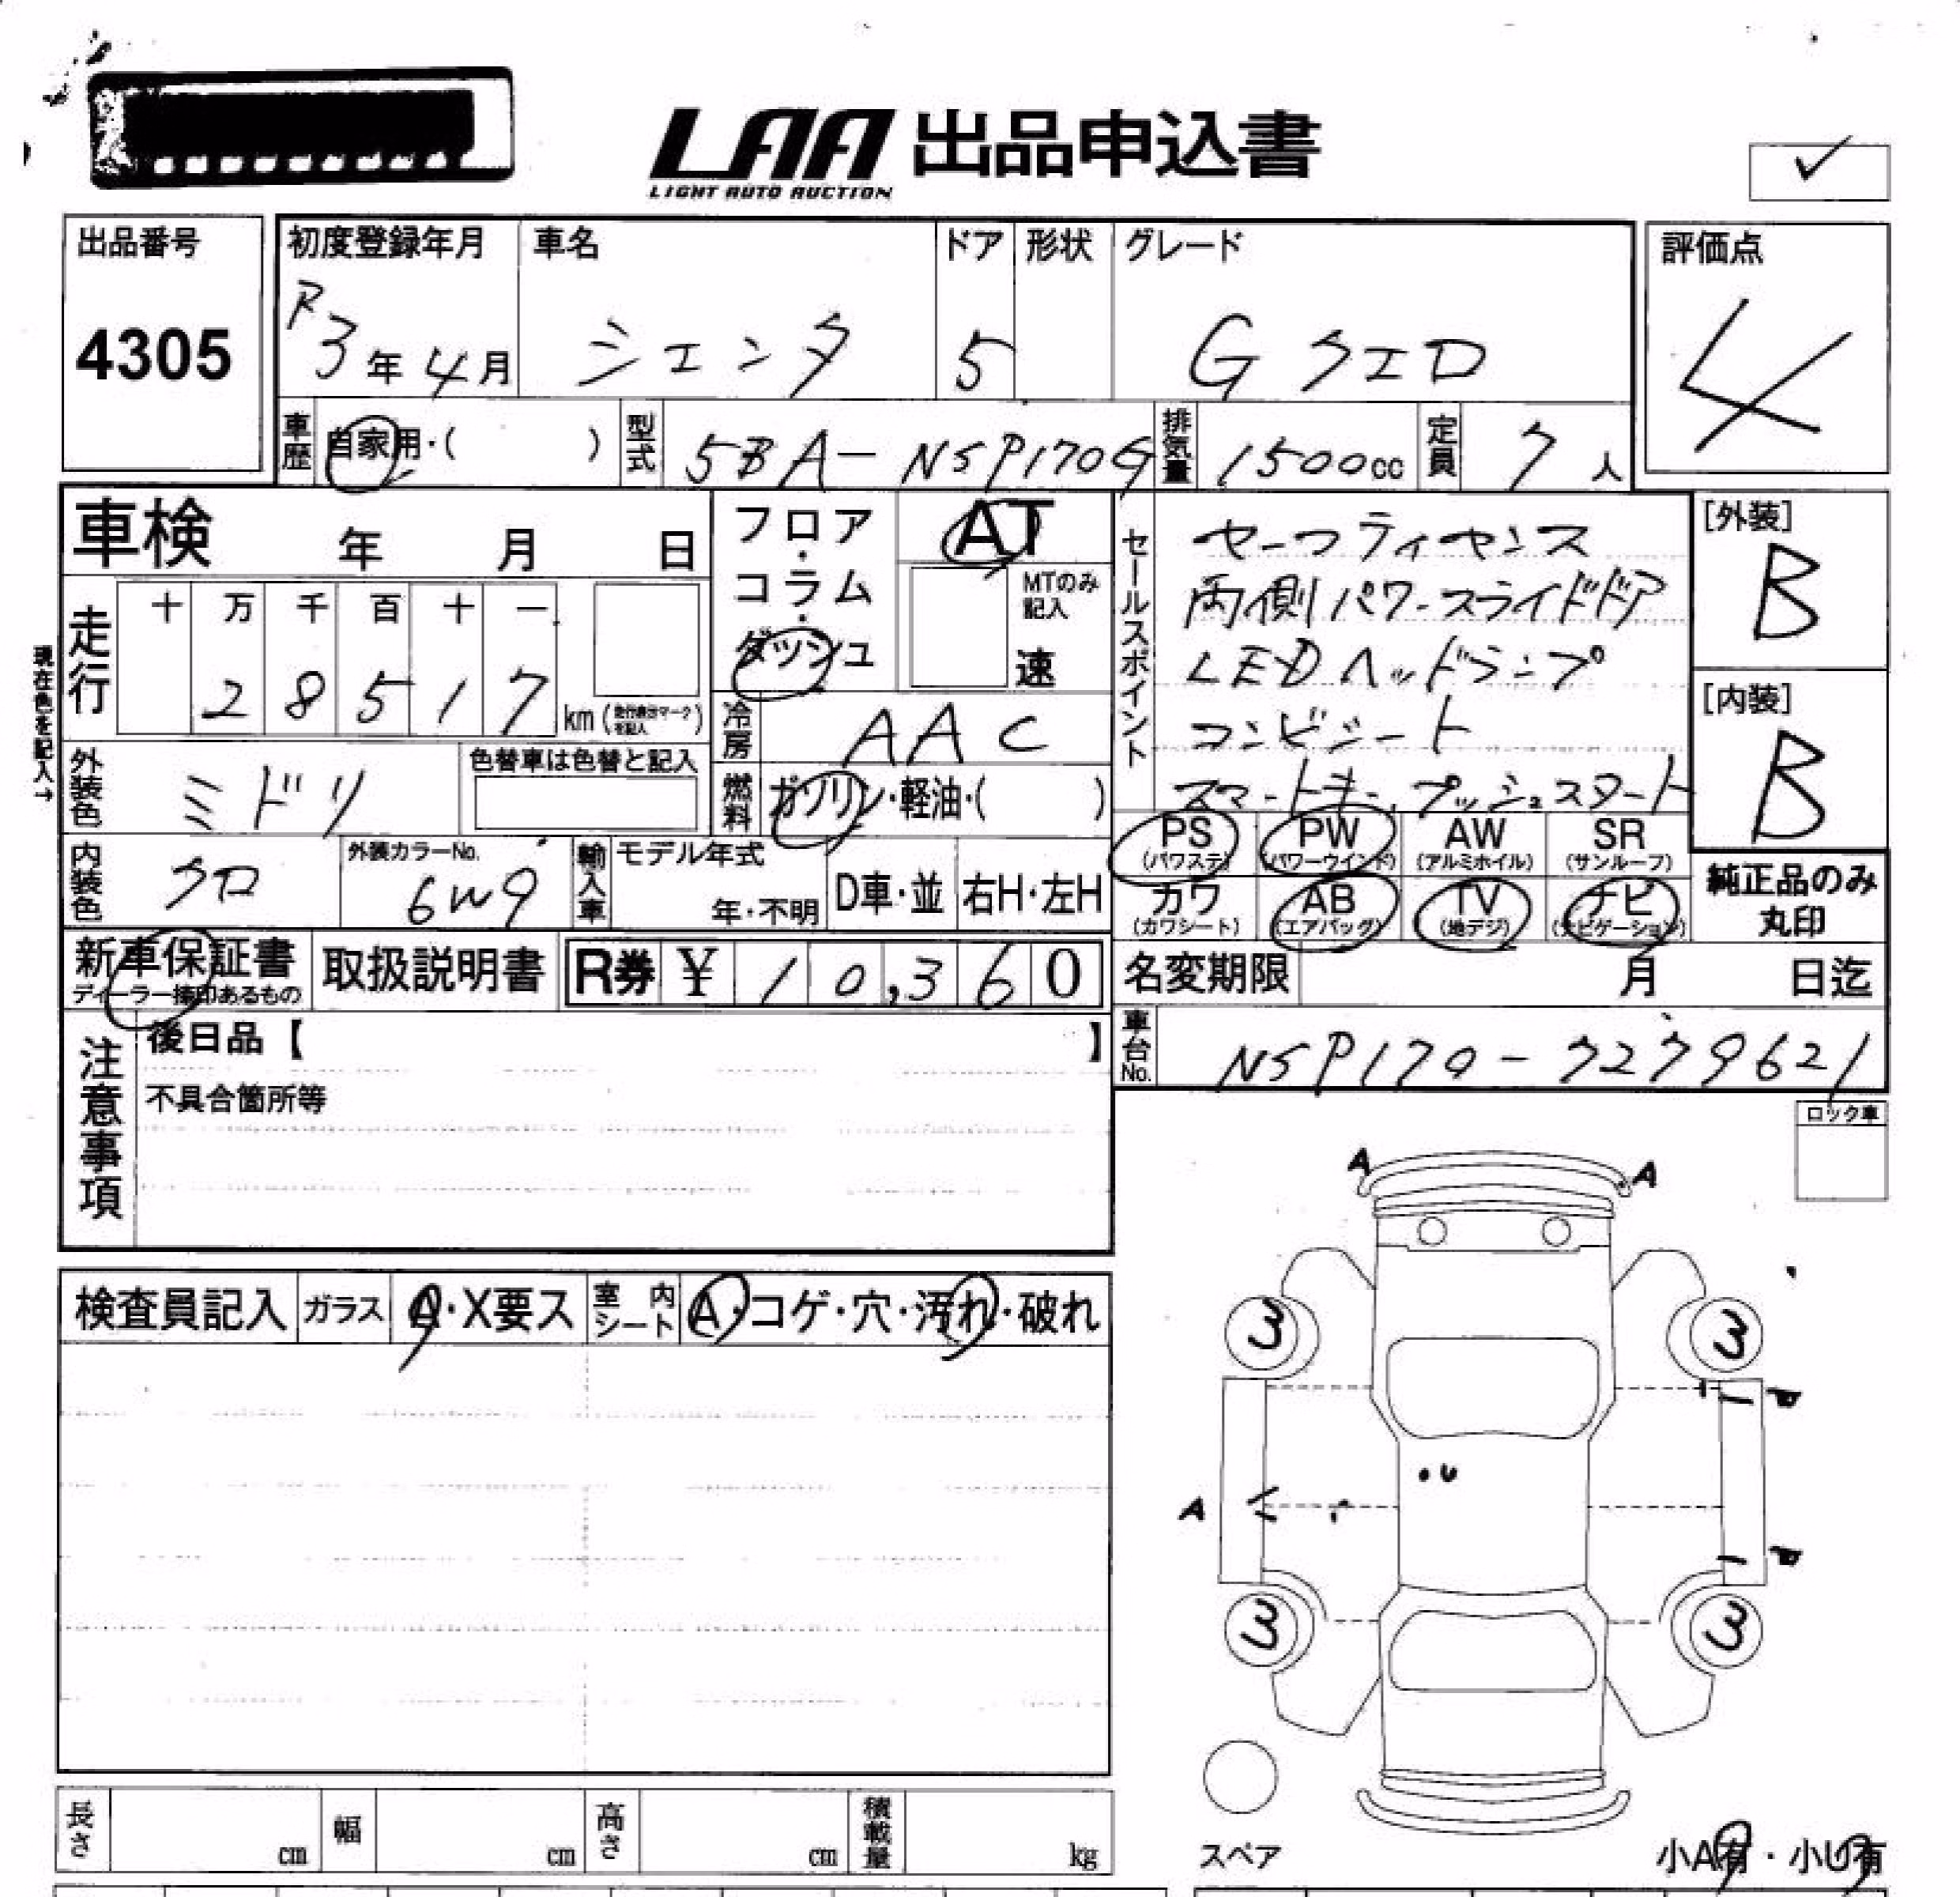 LAA 出品申込書
LIGHT AUTO AUCTION
出品番号
4305
初度登録年月
R3年4月
車名
シエンタ
ドア
5
形状
グレード
G クエロ
評価点
4
車歴
自家用・( )
型式
5BA-NSP170G
排気量
1500cc
定員
7人
車検 年 月 日
フロア・コラム・ダッシュ
AT
MTのみ記入
速
セールスポイント
セーフティセンス
両側パワースライドドア
LEDヘッドランプ
コンビシート
スマートキー、プッシュスタート
[外装]
B
[内装]
B
現在色を記入→
走行
十 万 千 百 十 一
2 8 5 1 7 km
冷房
AAC
外装色
ミドリ
色替車は色替と記入
燃料
ガソリン・軽油・( )
PS (パワステ) PW (パワーウインド) AW (アルミホイル) SR (サンルーフ)
カワ (カワシート) AB (エアバッグ) TV (地デジ) ナビ (ナビゲーション)
純正品のみ丸印
内装色
クロ
外装カラーNo.
6W9
輸入車
モデル年式
年・不明
D車・並
右H・左H
新車保証書
ディーラー捺印あるもの
取扱説明書
R券 ¥ 10,360
名変期限 月 日迄
車台No.
NSP170-7279621
注意事項
後日品【 】
不具合箇所等
ロック車
A A
検査員記入
ガラス
A・X要ス
室内シート
A・コゲ・穴・汚れ・破れ
3 3
U
A
3 3
スペア
小A有・小U有
長さ cm
幅 cm
高さ cm
積載量 kg